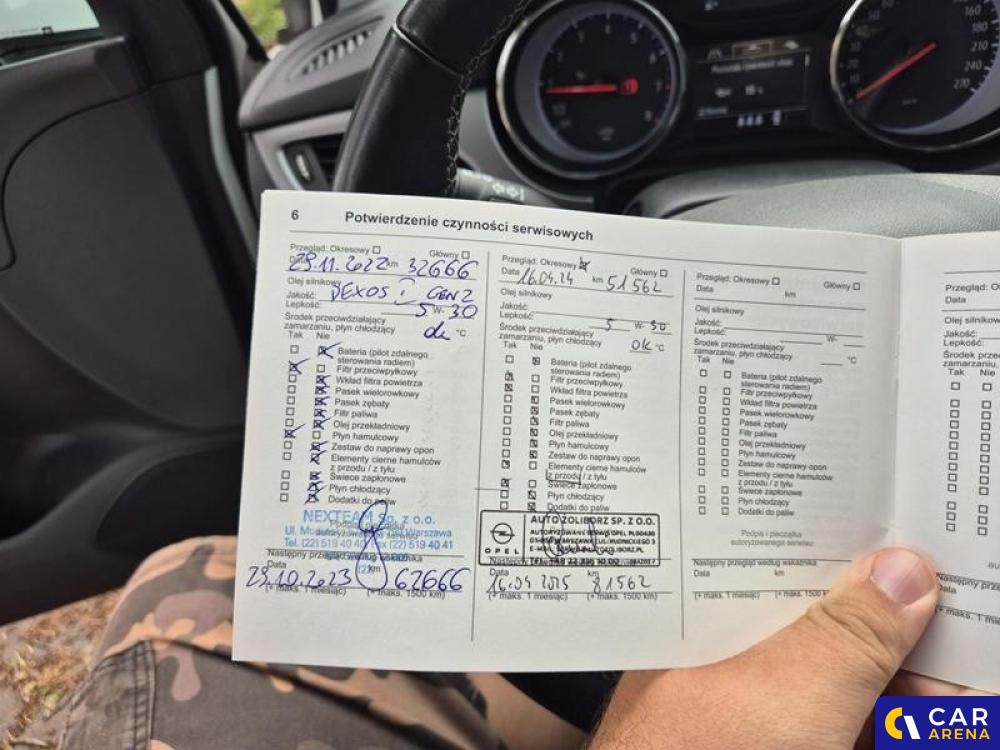 6 Potwierdzenie czynności serwisowych
Przegląd: Okresowy Główny
Data 29.11.2022 km 32666
Olej silnikowy
Jakość: DEXOS GEN2
Lepkość: 5 W- 30
Środek przeciwdziałający
zamarzaniu, płyn chłodzący ok °C
Tak Nie
Bateria (pilot zdalnego
sterowania radiem)
Filtr przeciwpyłkowy
Wkład filtra powietrza
Pasek wielorowkowy
Pasek zębaty
Filtr paliwa
Olej przekładniowy
Płyn hamulcowy
Zestaw do naprawy opon
Elementy cierne hamulców
z przodu / z tyłu
Świece zapłonowe
Płyn chłodzący
Dodatki do paliw
NEXTEAM Sp. z o.o.
Warszawa
Tel. (22) 519 40 40 (22) 519 40 41
Następny przegląd według wskaźnika
Data km
29.10.2023 62666
(+ maks. 1 miesiąc) (+ maks. 1500 km)
Przegląd: Okresowy Główny
Data 16.04.24 km 51562
Olej silnikowy
Jakość:
Lepkość: 5 W- 30
Środek przeciwdziałający
zamarzaniu, płyn chłodzący ok °C
Tak Nie
Bateria (pilot zdalnego
sterowania radiem)
Filtr przeciwpyłkowy
Wkład filtra powietrza
Pasek wielorowkowy
Pasek zębaty
Filtr paliwa
Olej przekładniowy
Płyn hamulcowy
Zestaw do naprawy opon
Elementy cierne hamulców
z przodu / z tyłu
Świece zapłonowe
Płyn chłodzący
Dodatki do paliw
OPEL
AUTO ŻOLIBORZ SP. Z O.O.
Następny przegląd według wskaźnika
Data km
16.04.2025 81562
(+ maks. 1 miesiąc) (+ maks. 1500 km)
Przegląd: Okresowy Główny
Data km
Olej silnikowy
Jakość:
Lepkość: W-
Środek przeciwdziałający
zamarzaniu, płyn chłodzący °C
Tak Nie
Bateria (pilot zdalnego
sterowania radiem)
Filtr przeciwpyłkowy
Wkład filtra powietrza
Pasek wielorowkowy
Pasek zębaty
Filtr paliwa
Olej przekładniowy
Płyn hamulcowy
Zestaw do naprawy opon
Elementy cierne hamulców
z przodu / z tyłu
Świece zapłonowe
Płyn chłodzący
Dodatki do paliw
Podpis i pieczątka
autoryzowanego serwisu
Następny przegląd według wskaźnika
Data km
(+ maks. 1 miesiąc) (+ maks. 1500
Data
Tak Nie
CAR
ARENA